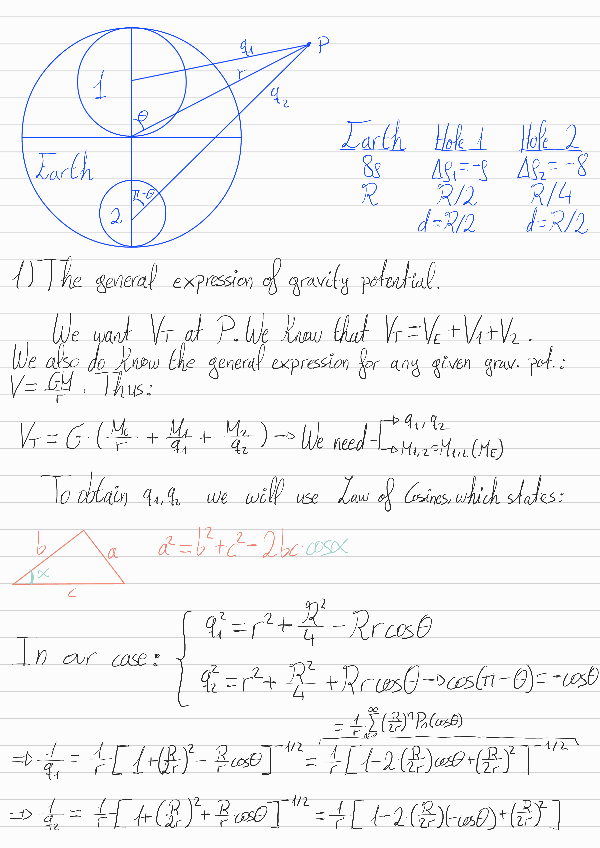 q₁
P
r
q₂
1
θ
Earth
π-θ
2
Earth Hole 1 Hole 2
8ρ Δρ₁=-ρ Δρ₂=-8
R R/2 R/4
d=R/2 d=R/2
1) The general expression of gravity potential.
We want V_T at P. We know that V_T=V_E+V₁+V₂.
We also do know the general expression for any given grav. pot.:
V=GM/r. Thus:
V_T = G·(M_E/r + M₁/q₁ + M₂/q₂) → We need → q₁,q₂
→ M₁,₂=M₁,₂(M_E)
To obtain q₁,q₂ we will use Law of Cosines, which states:
b a α c
a²=b²+c²-2bc·cosα
In our case: { q₁²=r²+R²/4-Rrcosθ
q₂²=r²+R²/4+Rrcosθ → cos(π-θ)=-cosθ
=1/r·∑_{n=0}^∞(R/2r)ⁿPn(cosθ)
⇒ 1/q₁ = 1/r·[1+(R/2r)²-R/r cosθ]^{-1/2} = 1/r[1-2(R/2r)cosθ+(R/2r)²]^{-1/2}
⇒ 1/q₂ = 1/r·[1+(R/2r)²+R/r cosθ]^{-1/2} = 1/r[1-2(R/2r)(-cosθ)+(R/2r)²]